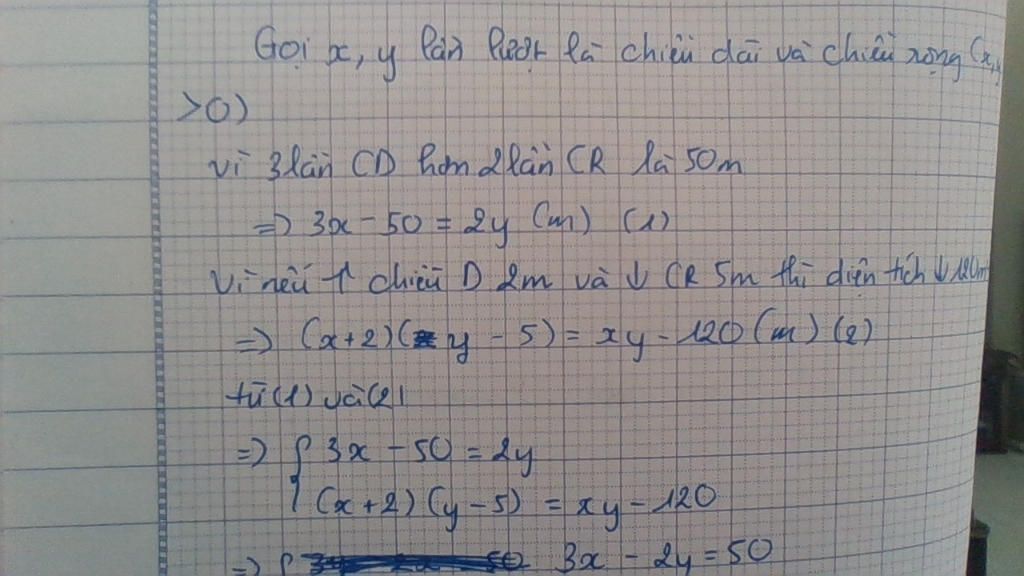 Gọi x, y lần lượt là chiều dài và chiều rộng (x,y
>0)
vì 3 lần CD hơn 2 lần CR là 50m
=> 3x - 50 = 2y (m) (1)
Vì nếu ↑ chiều D 2m và ↓ CR 5m thì diện tích ↓ 120m
=> (x+2)(y - 5) = xy - 120 (m) (2)
từ (1) và (2)
=> { 3x - 50 = 2y
(x+2)(y-5) = xy - 120
=> { 3x - 2y = 50